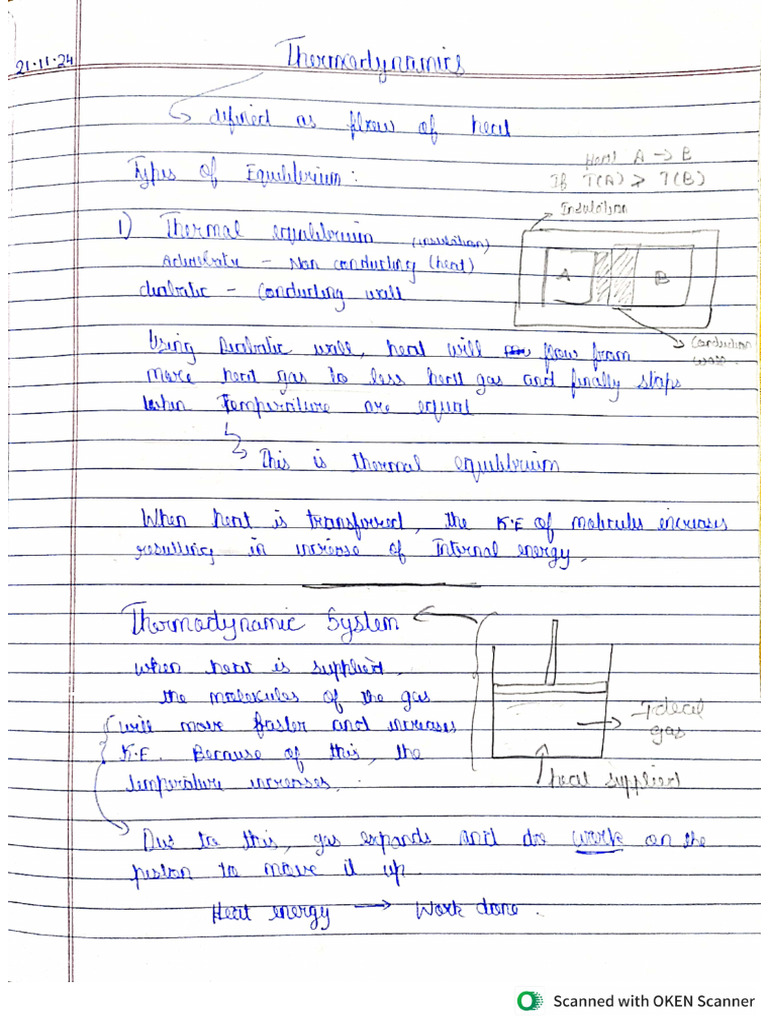 21.11.24
Thermodynamics
defined as flow of heat
Types of Equilibrium:
Heat A -> B
If T(A) > T(B)
Insulation
1) Thermal equilibrium (insulation)
Adiabatic - Non conducting (heat)
diabatic - Conducting wall
A B
Conduction
wall.
Using Diabatic wall, heat will flow from
more heat gas to less heat gas and finally stops
when Temperature are equal
This is thermal equilibrium
When heat is transferred, the K.E of molecules increases
resulting in increase of Internal energy.
Thermodynamic System
when heat is supplied,
the molecules of the gas
will move faster and increases
K.E. Because of this, the
temperature increases.
Ideal
gas
heat supplied
Due to this, gas expands and do work on the
piston to move it up
Heat energy -> Work done.
Scanned with OKEN Scanner